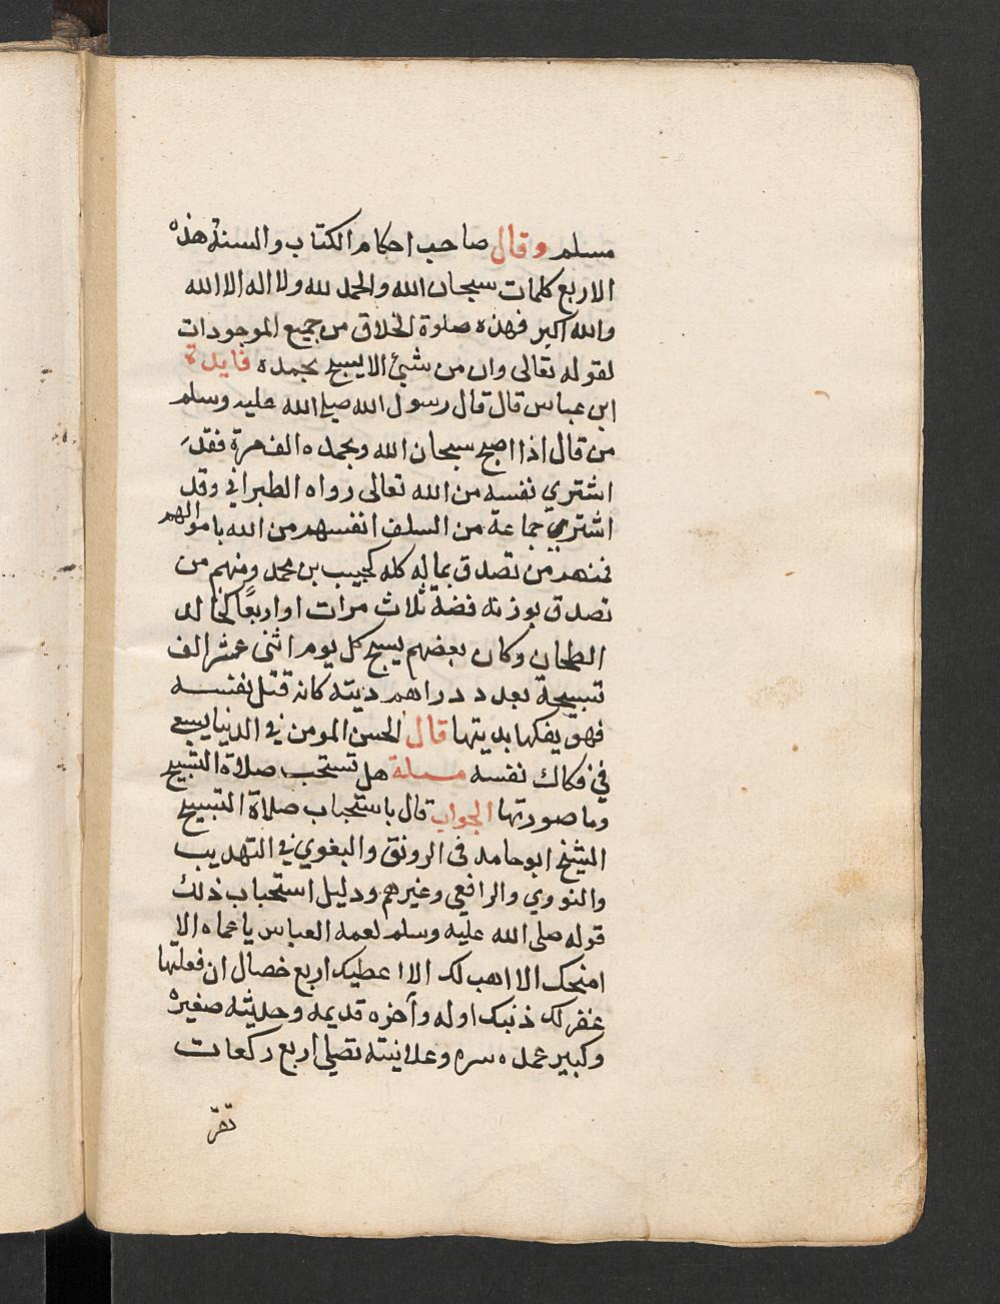 مسلم وقال صاحب احكام الكتاب والسنة هذه
الاربع كلمات سبحان الله والحمد لله ولا اله الا الله
والله اكبر فهذه صلوة الخلاق من جميع الموجودات
لقوله تعالى وان من شيئ الا يسبح بحمده فايدة
ابن عباس قال قال رسول الله صلى الله عليه وسلم
من قال اذا اصبح سبحان الله وبحمده الف مرة فقد
اشتري نفسه من الله تعالى رواه الطبراني وقد
اشتري جماعة من السلف انفسهم من الله باموالهم
فمنهم من تصدق بماله كله كحبيب بن محمد ومنهم من
تصدق بوزنه فضة ثلاث مرات او اربعًا كخالد
الطحان وكان بعضهم يسبح كل يوم اثنى عشر الف
تسبيحة بعدد دراهم ديته كانه قتل نفسه
فهو يفكها بديتها قال الحسن المومن في الدنيا يسعى
في فكاك نفسه مسلة هل تستحب صلاة التسبيح
وما صورتها الجواب قال باستحباب صلاة التسبيح
الشيخ ابو حامد فى الرونق والبغوي في التهديب
والنووي والرافعي وغيرهم ودليل استحباب ذلك
قوله صلى الله عليه وسلم لعمه العباس يا عماه الا
امنحك الا اهب لك الا اعطيك اربع خصال ان فعلتها
غفر لك ذنبك اوله وآخره قديمه وحديثه صغيره
وكبير عمده سره وعلانيته تصلي اربع ركعات
تقر